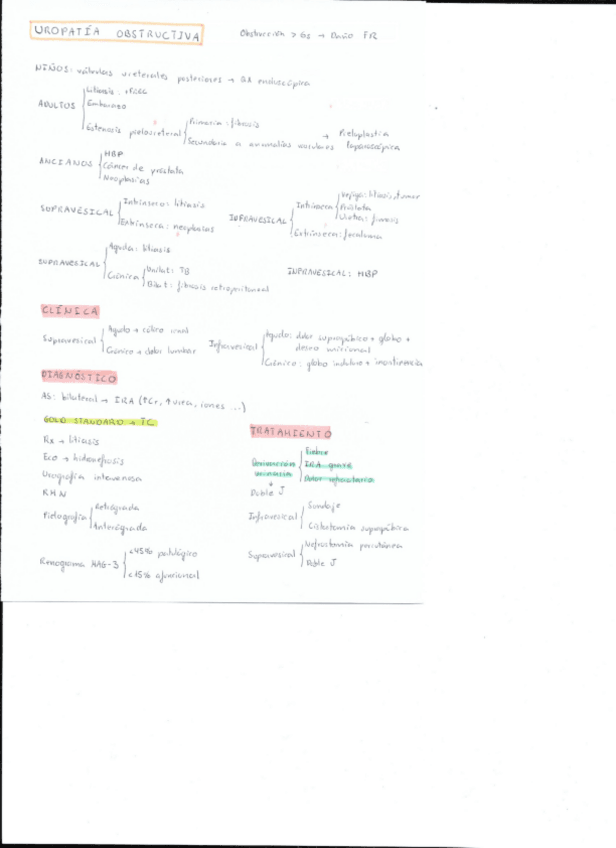 UROPATÍA OBSTRUCTIVA
Obstrucción > 6s → Daño FR
NIÑOS: válvulas ureterales posteriores → endoscópica
ADULTOS
Litiasis:
Embarazo
Estenosis pieloureteral
Primaria: fibrosis
Secundaria a anomalías vasculares
→ Pieloplastia laparoscópica
ANCIANOS
HBP
Cáncer de próstata
Neoplasias
SUPRAVESICAL
Intrínseco: litiasis
Extrínseca: neoplasias
INFRAVESICAL
Intrínseca
Vejiga: litiasis, tumor
Próstata
Uretra: fimosis
Extrínseca:
SUPRAVESICAL
Aguda: litiasis
Crónica
Unilat: TB
Bilat: fibrosis retroperitoneal
INFRAVESICAL: HBP
CLÍNICA
Supravesical
Agudo → cólico renal
Crónico → dolor lumbar
Infravesical
Agudo: dolor suprapúbico + globo + deseo miccional
Crónico: globo indoloro + incontinencia
DIAGNÓSTICO
AS: bilateral → IRA (↑Cr, ↑urea, iones ...)
GOLD STANDARD → TC
Rx → litiasis
Eco → hidronefrosis
Urografía intravenosa
RMN
Pielografía
Retrógrada
Anterógrada
Renograma MAG-3
<45% patológico
<15% afuncional
TRATAMIENTO
Derivación urinaria
Fiebre
IRA grave
Dolor refractario
↓
Doble J
Infravesical
Sondaje
Cistotomía suprapúbica
Supravesical
Nefrostomía percutánea
Doble J